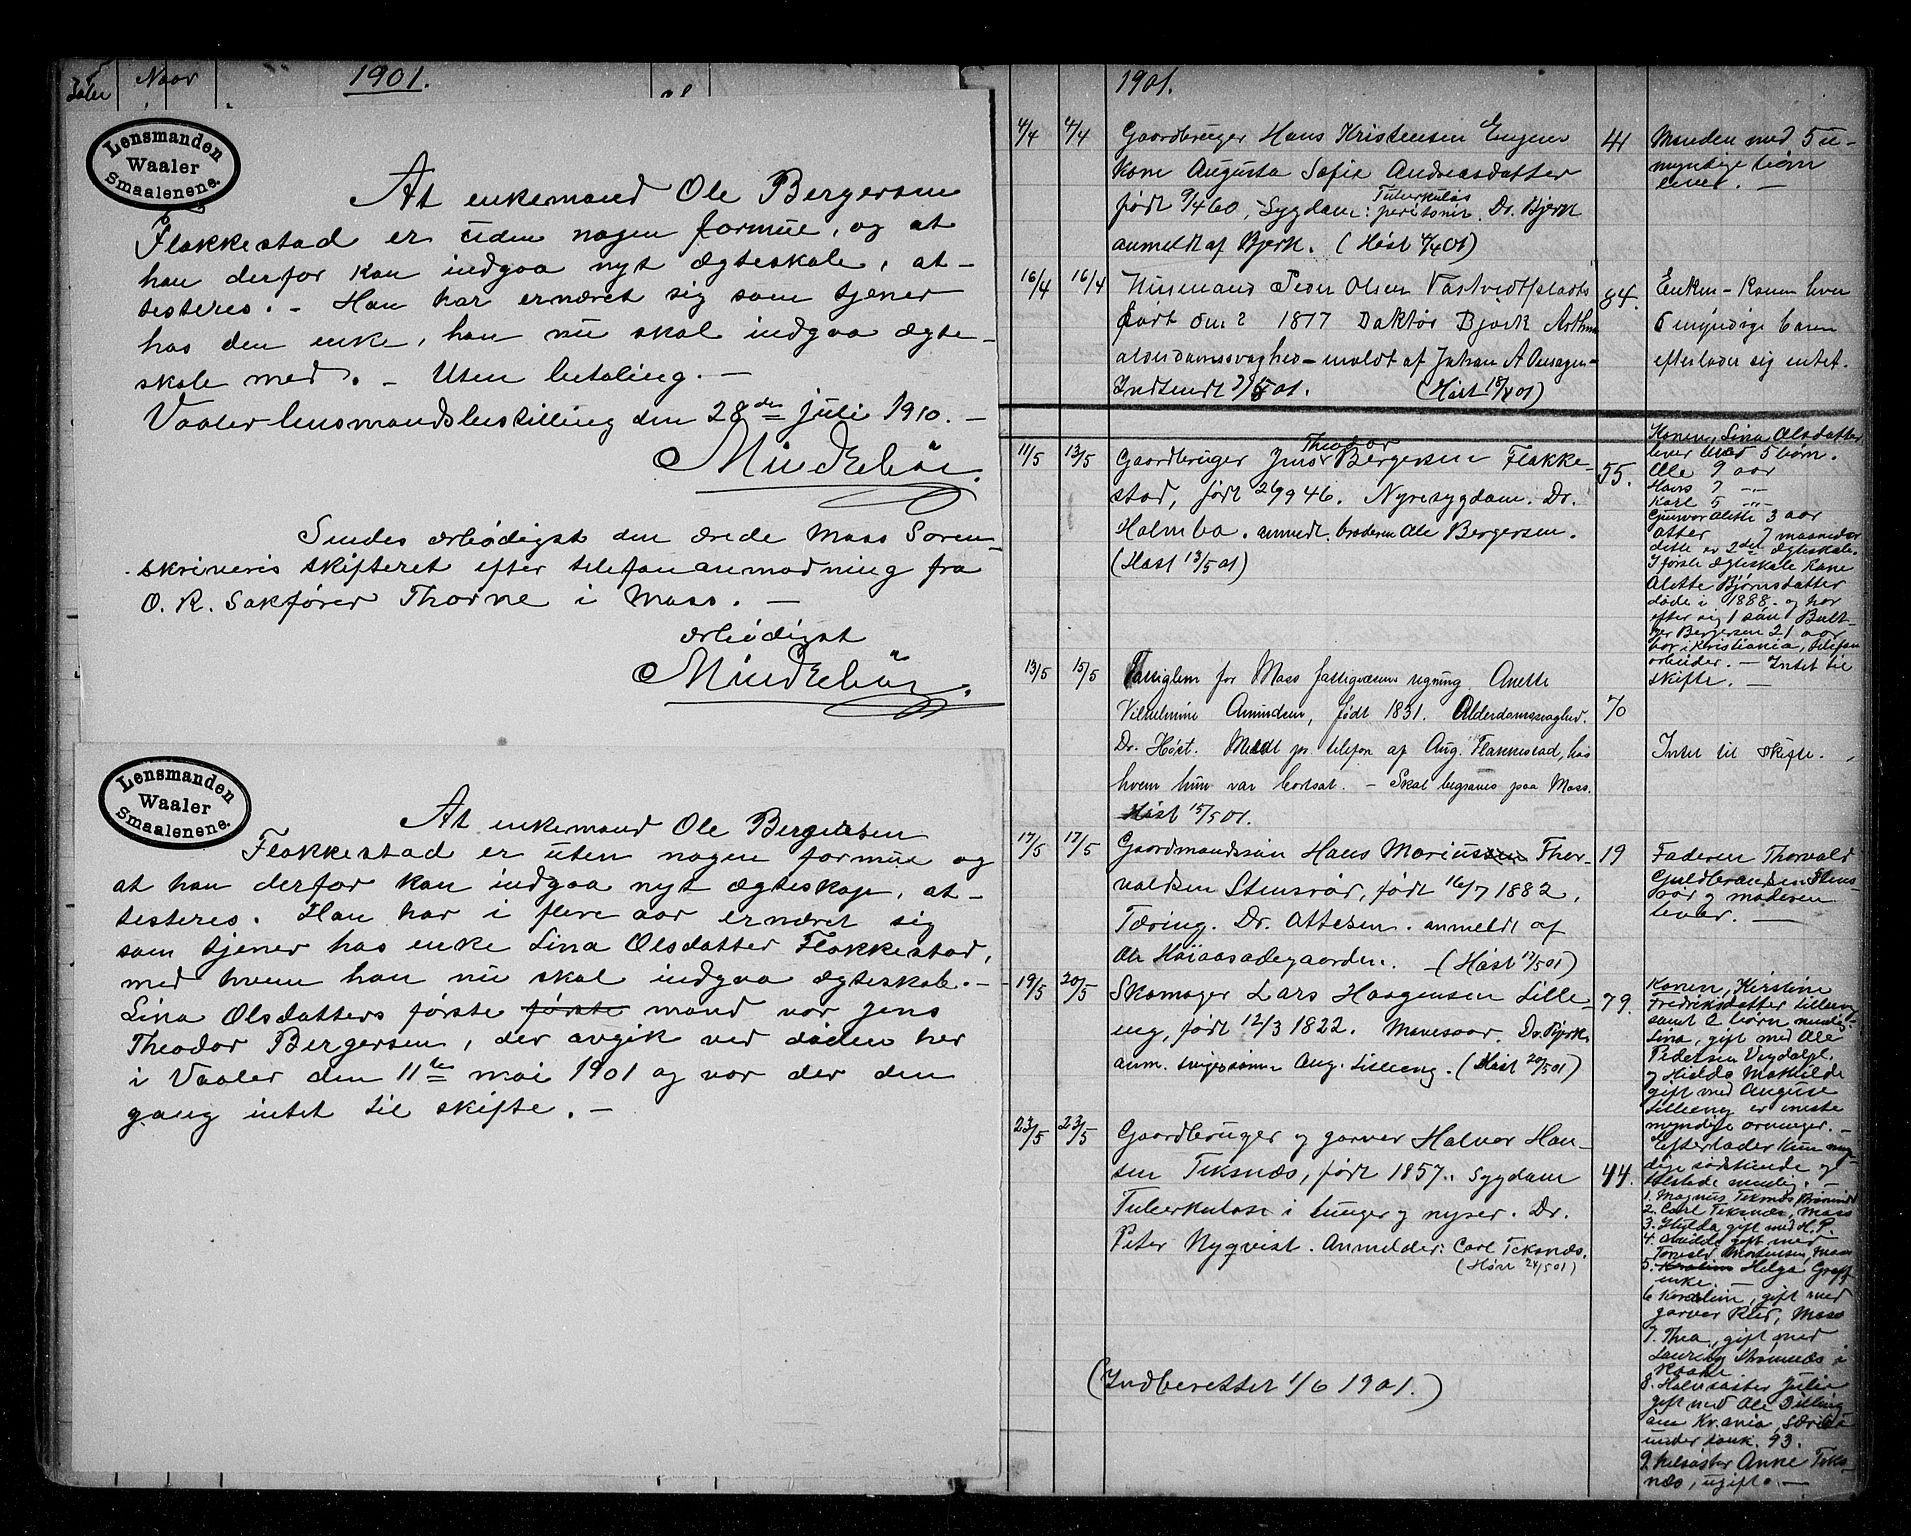 1901.
Naar
Lensmanden
Waaler
Smaalenene.
At enkemand Ole Bergersen
Flakkestad er uden nogen formue, og at
han derfor kan indgaa nyt ægteskab, at-
testeres. - Han har ernæret sig som tjener
hos den enke, han nu skal indgaa ægte-
skab med. - Uten betaling. -
Vaaler lensmandsbestilling den 28de juli 1910. -
Sendes ærbødigst den ærede Moss Soren-
skriveris skifteret efter telefonanmodning fra
O. R. Sakfører Thorne i Moss. -
ærbødigst
Lensmanden
Waaler
Smaalenene.
At enkemand Ole Bergersen
Flakkestad er uten nogen formue og
at han derfor kan indgaa nyt ægteskap, at-
testeres. Han har i flere aar ernæret sig
som tjener hos enke Lina Olsdatter Flakkestad,
med hvem han nu skal indgaa ægteskab. -
Lina Olsdatters første første mand var Jens
Theodor Bergersen, der avgik ved døden her
i Vaaler den 11te mai 1901 og var der den
gang intet til skifte. -
1901.
4/4 4/4 Gaardbruger Hans Kristensen Engen
kone Augusta Sofie Andreasdatter
født 9/4 60, Sygdom: Tuberkuløs
peritonit. Dr. Bjerk
anmeldt af Bjerk. (Høst 4/4 01)
41
Manden med 5 u-
myndige børn
lever. -
16/4 16/4 Husmand Peder Olsen
født den 2 1817 Doktor Bjerk
alderdomssvaghed - meldt af Johan A
Indsendt 2/5 01. (Høst 18/4 01)
84.
Enken - Konen lever
6 myndige barn
efterlader sig intet.
11/5 13/5 Gaardbruger Jens Theodor Bergersen Flakke-
stad, født 26/9 46. Nyresygdom. Dr.
Holmbo. anmeldt broderen Ole Bergersen.
(Høst 13/5 01)
55.
Konen, Lina Olsdatter
lever med 5 børn.
Ole 9 aar
Hans 7 -"-
Karl 5 -"-
Gunvor Alette 3 aar
7 maaneder
dette er 2det ægteskab.
I første ægteskab Kone
Alette Bjørnsdatter
døde i 1888. og har
efter sig 1 søn
Bergersen 21 aar
bor i Kristiania, telefon
arbeider. - Intet til
skifte. -
13/5 15/5 Fattiglem for Moss fattigvæsens regning, Anette
Vilhelmine Amundsen, født 1831. Alderdomssvaghed.
Dr. Høst. Meldt pr. telefon af Aug. Flakkestad, hos
hvem hun var bortsat. - Skal begraves paa Moss.
Høst 15/5 01.
70
Intet til skifte.
17/5 17/5 Gaardmandssøn Hans Mariussen Thor-
valdsen Stensrød, født 16/7 1882,
Tæring. Dr. Ottesen. anmeldt af
Ole Høiaasødegaarden. - (Høst 17/5 01)
19
Faderen Thorvald
Guldbrandsen Stens-
rød og moderen
lever. -
19/5 20/5 Skomager Lars Haagensen Lille-
eng, født 12/3 1822. Mavesaar. Dr. Bjerk
anm. svigersønnen Aug. Lilleeng. (Høst 20/5 01)
79.
Konen, Kirstine
Fredriksdatter Lilleeng
samt 2 børn nemlig
Lina, gift med Ole
Pedersen
og Hilda Mathilde
gift med August
Lilleeng er eneste
myndige arvinger. -
23/5 23/5 Gaardbruger og garver Halvor Han-
sen Teksnæs, født 1857. Sygdom
Tuberkulose i lunger og nyrer. Dr.
Peter Nyqvist. Anmelder: Carl Teksnæs.
(Høst 24/5 01)
44.
Efterlader kun myn-
dige sødskende og
halvsøde nemlig. -
1. Magnus Teksnæs
2. Carl Teksnæs, Moss
3. Hylda gift med H. P.
4. gift med
Torvald Mortensen, Moss
5. Helga
enke. -
6 gift med
garver Rød, Moss
7. Thea, gift med
Lauritz i
Raade
8. Halvsøster Julie
gift med Ole Dilling
Kr.ania,
under bank. 93.
9. Helsøster Anne Teks-
næs, ugift. -
(Indberettet 1/6 1901.)